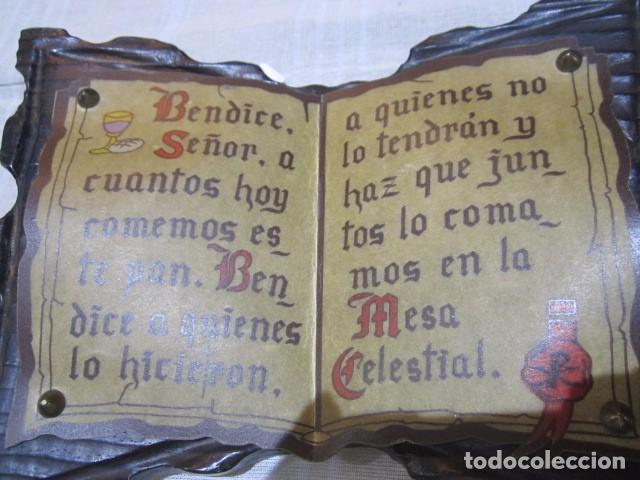 Bendice,
Señor, a
cuantos hoy
comemos es_
te pan. Ben_
dice a quienes
lo hicieron,
a quienes no
lo tendrán y
haz que jun_
tos lo coma_
mos en la
Mesa
Celestial.
todocoleccion